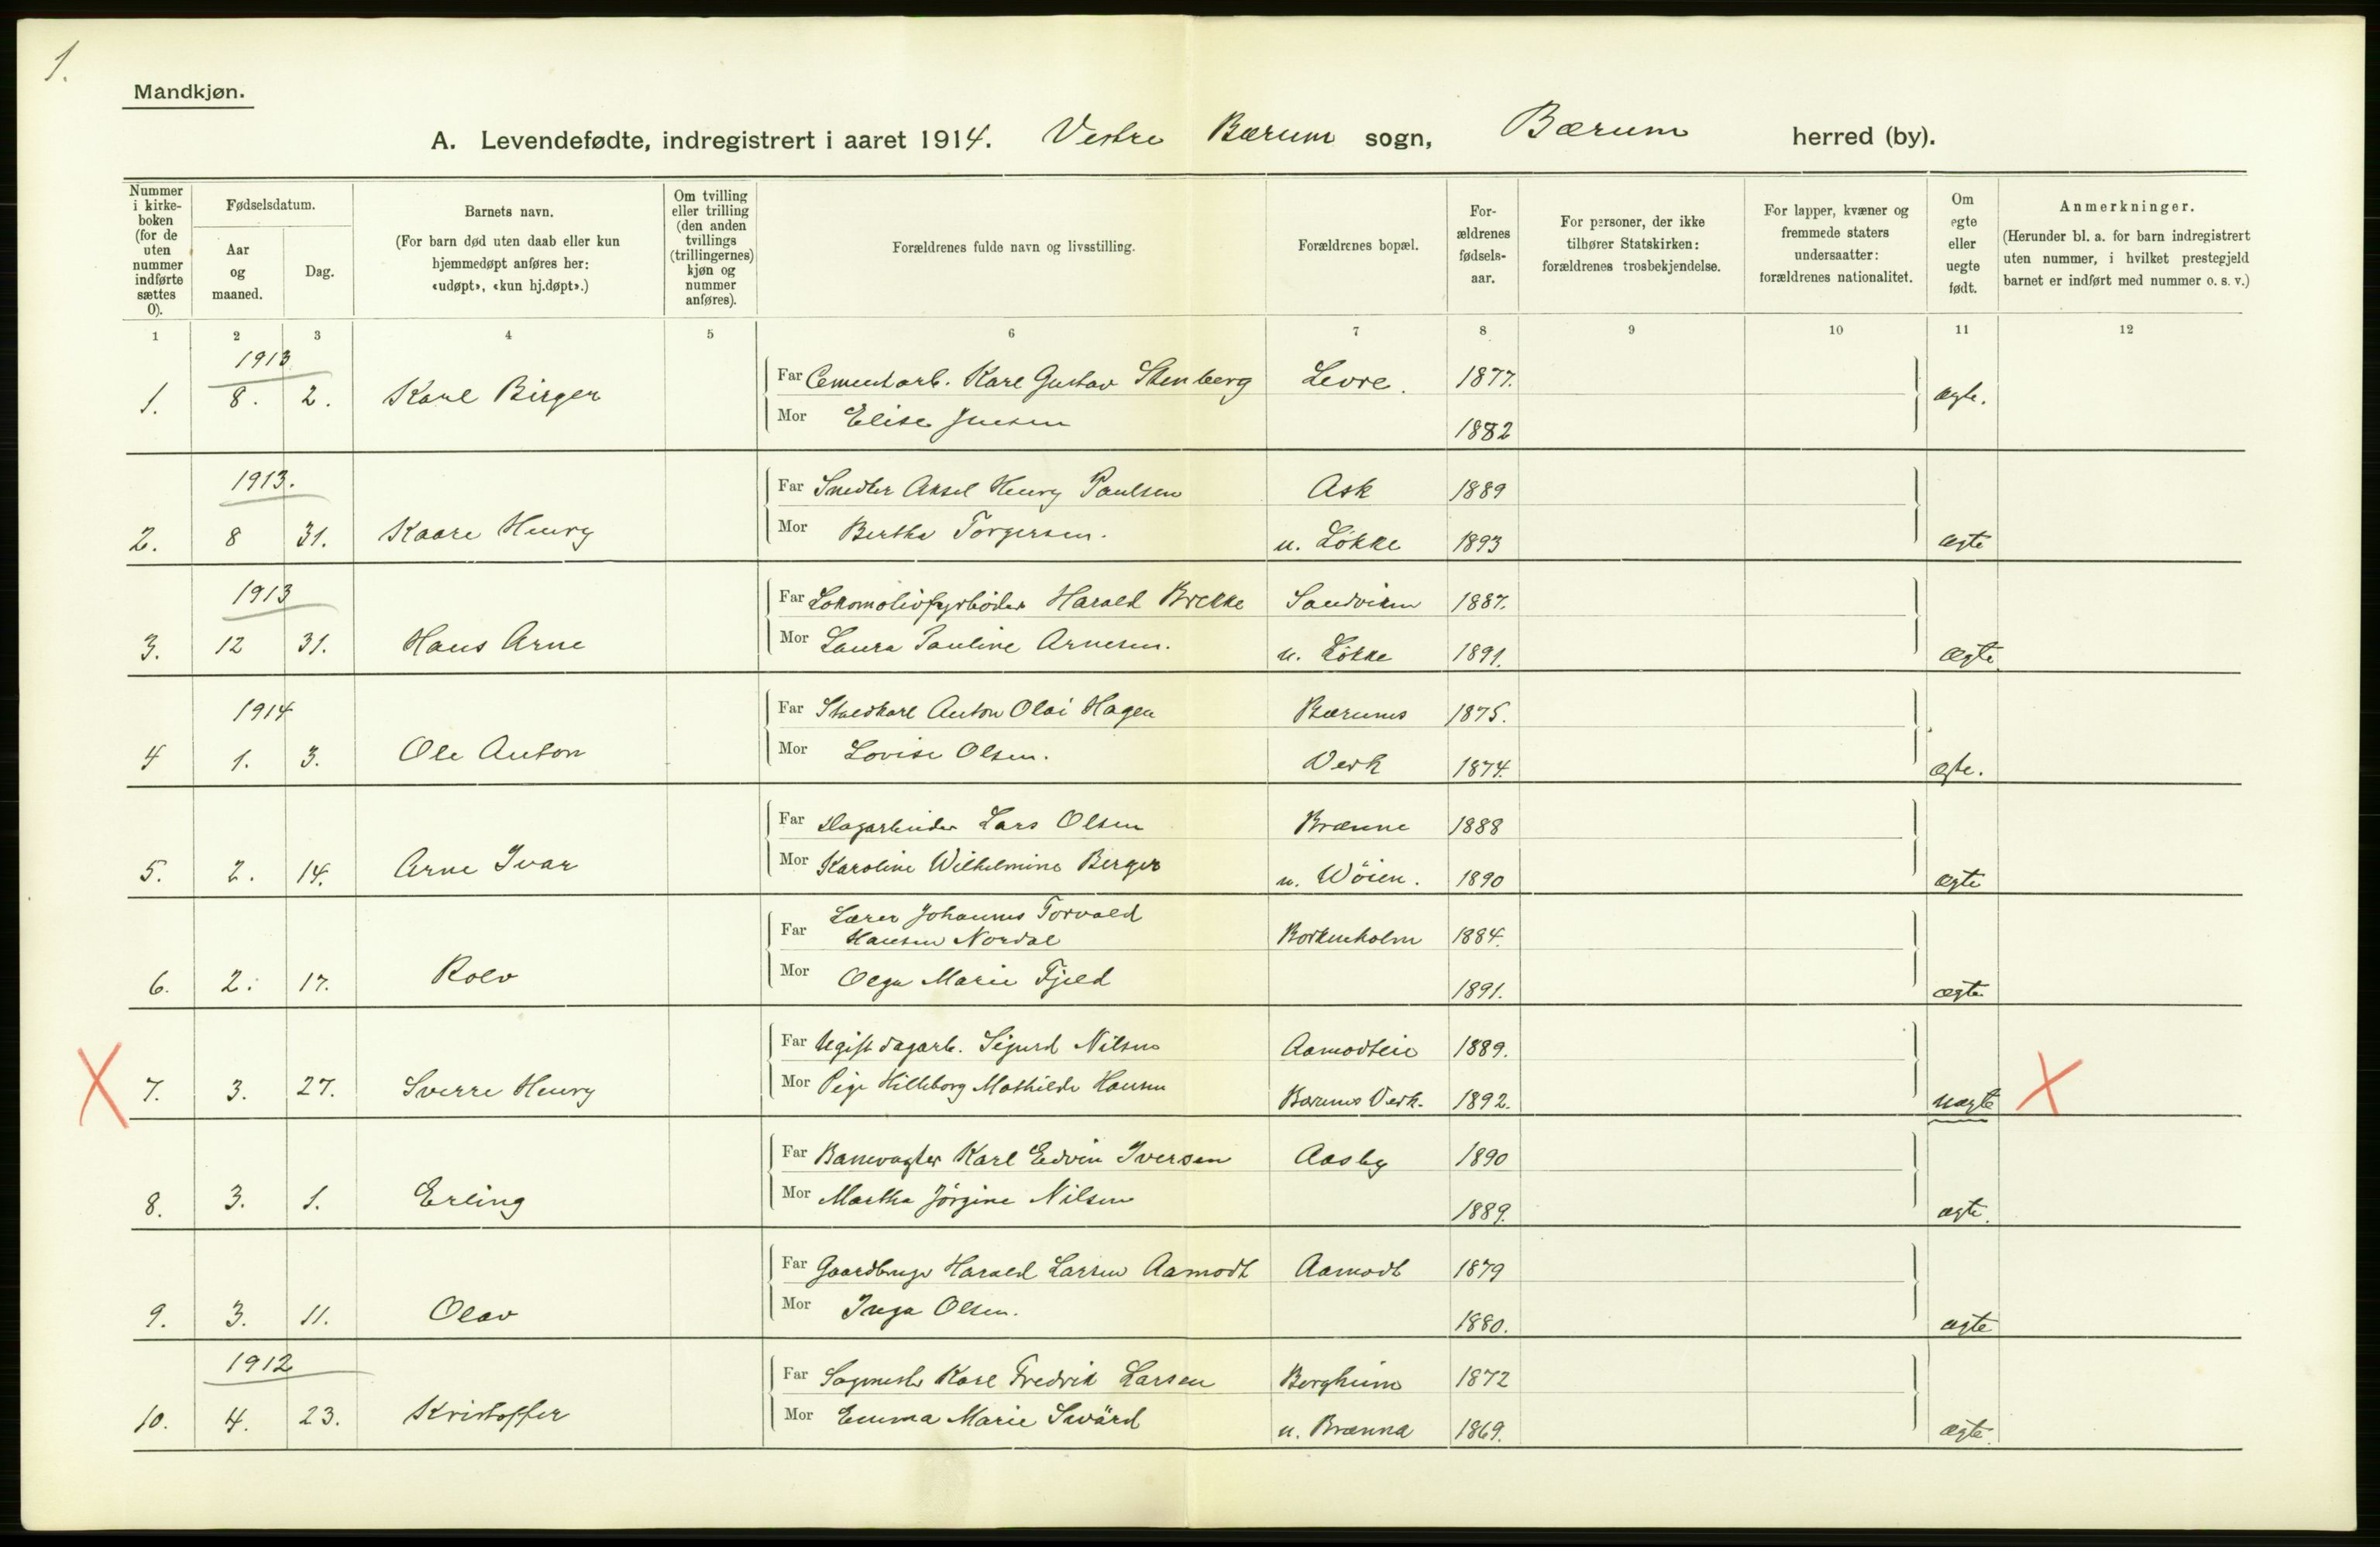 1.
Mandkjøn.
A. Levendefødte, indregistrert i aaret 1914. Vestre Bærum sogn, Bærum herred (by).
Nummer i kirke-boken (for de uten nummer indførte sættes 0).
Fødselsdatum.
Aar og maaned.
Dag.
Barnets navn.
(For barn død uten daab eller kun hjemmedøpt anføres her: «udøpt», «kun hj.døpt».)
Om tvilling eller trilling (den anden tvillings (trillingernes) kjøn og nummer anføres).
Forældrenes fulde navn og livsstilling.
Forældrenes bopæl.
For-ældrenes fødsels-aar.
For personer, der ikke tilhører Statskirken: forældrenes trosbekjendelse.
For lapper, kvæner og fremmede staters undersaatter: forældrenes nationalitet.
Om egte eller uegte født.
Anmerkninger.
(Herunder bl. a. for barn indregistrert uten nummer, i hvilket prestegjeld barnet er indført med nummer o. s. v.)
1 2 3 4 5 6 7 8 9 10 11 12
1913
1. 8. 2. Karl Birger Far Cementarb. Karl Gustav Stenberg Levre. 1877. ægte.
Mor Elise Jensen 1882
1913.
2. 8 31. Kaare Henry Far Snedker Aksel Henry Paulsen Ask 1889
Mor Bertha Torgersen. u. Løkke 1893 ægte
1913
3. 12 31. Hans Arne Far Lokomotivfyrbøder Harald Brekke Sandviken 1887.
Mor Laura Pauline Arnesen. u. Løkke 1891. ægte.
1914
4 1. 3. Ole Anton Far Staldkarl Anton Olai Hagen Bærums 1875.
Mor Lovise Olsen. Verk 1874. ægte.
5. 2. 14. Arne Ivar Far Dagarbeider Lars Olsen Brænne 1888
Mor Karoline Wilhelmine Berger u. Wöien. 1890 ægte
6. 2. 17. Rolv Far Lærer Johannes Torvald
Hansen Nordal Borkenholm 1884.
Mor Olga Marie Fjeld 1891. ægte
7. 3. 27. Sverre Henry Far Ugift dagarb. Sigurd Nilsen Aamodteie 1889.
Mor Pige Hilleborg Mathilde Hansen Bærums Verk. 1892. uægte
8. 3. 1. Erling Far Banevogter Karl Edvin Iversen Aasby 1890
Mor Martha Jörgine Nilsen 1889. ægte.
9. 3. 11. Olav Far Gaardbruger Harald Larsen Aamodt Aamodt 1879
Mor Inga Olsen. 1880. ægte
1912
10. 4. 23. Kristoffer Far Sagmester Karl Fredrik Larsen Bergheim 1872
Mor Emma Marie Svärd u. Brænna 1869. ægte.